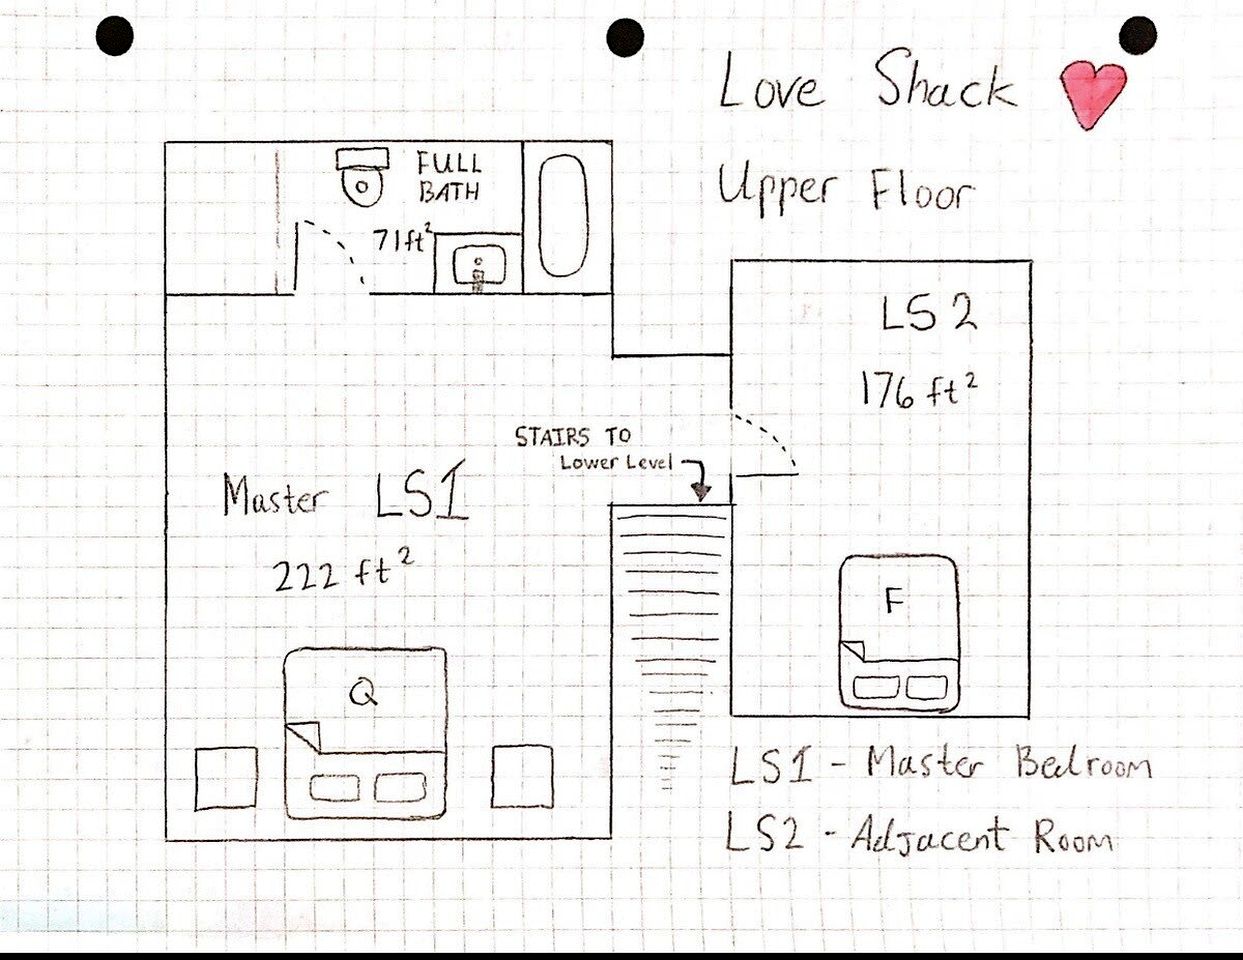 Love Shack
Upper Floor
FULL
BATH
71ft²
LS2
176 ft²
STAIRS TO
Lower Level
Master LS1
222 ft²
F
Q
LS1 - Master Bedroom
LS2 - Adjacent Room